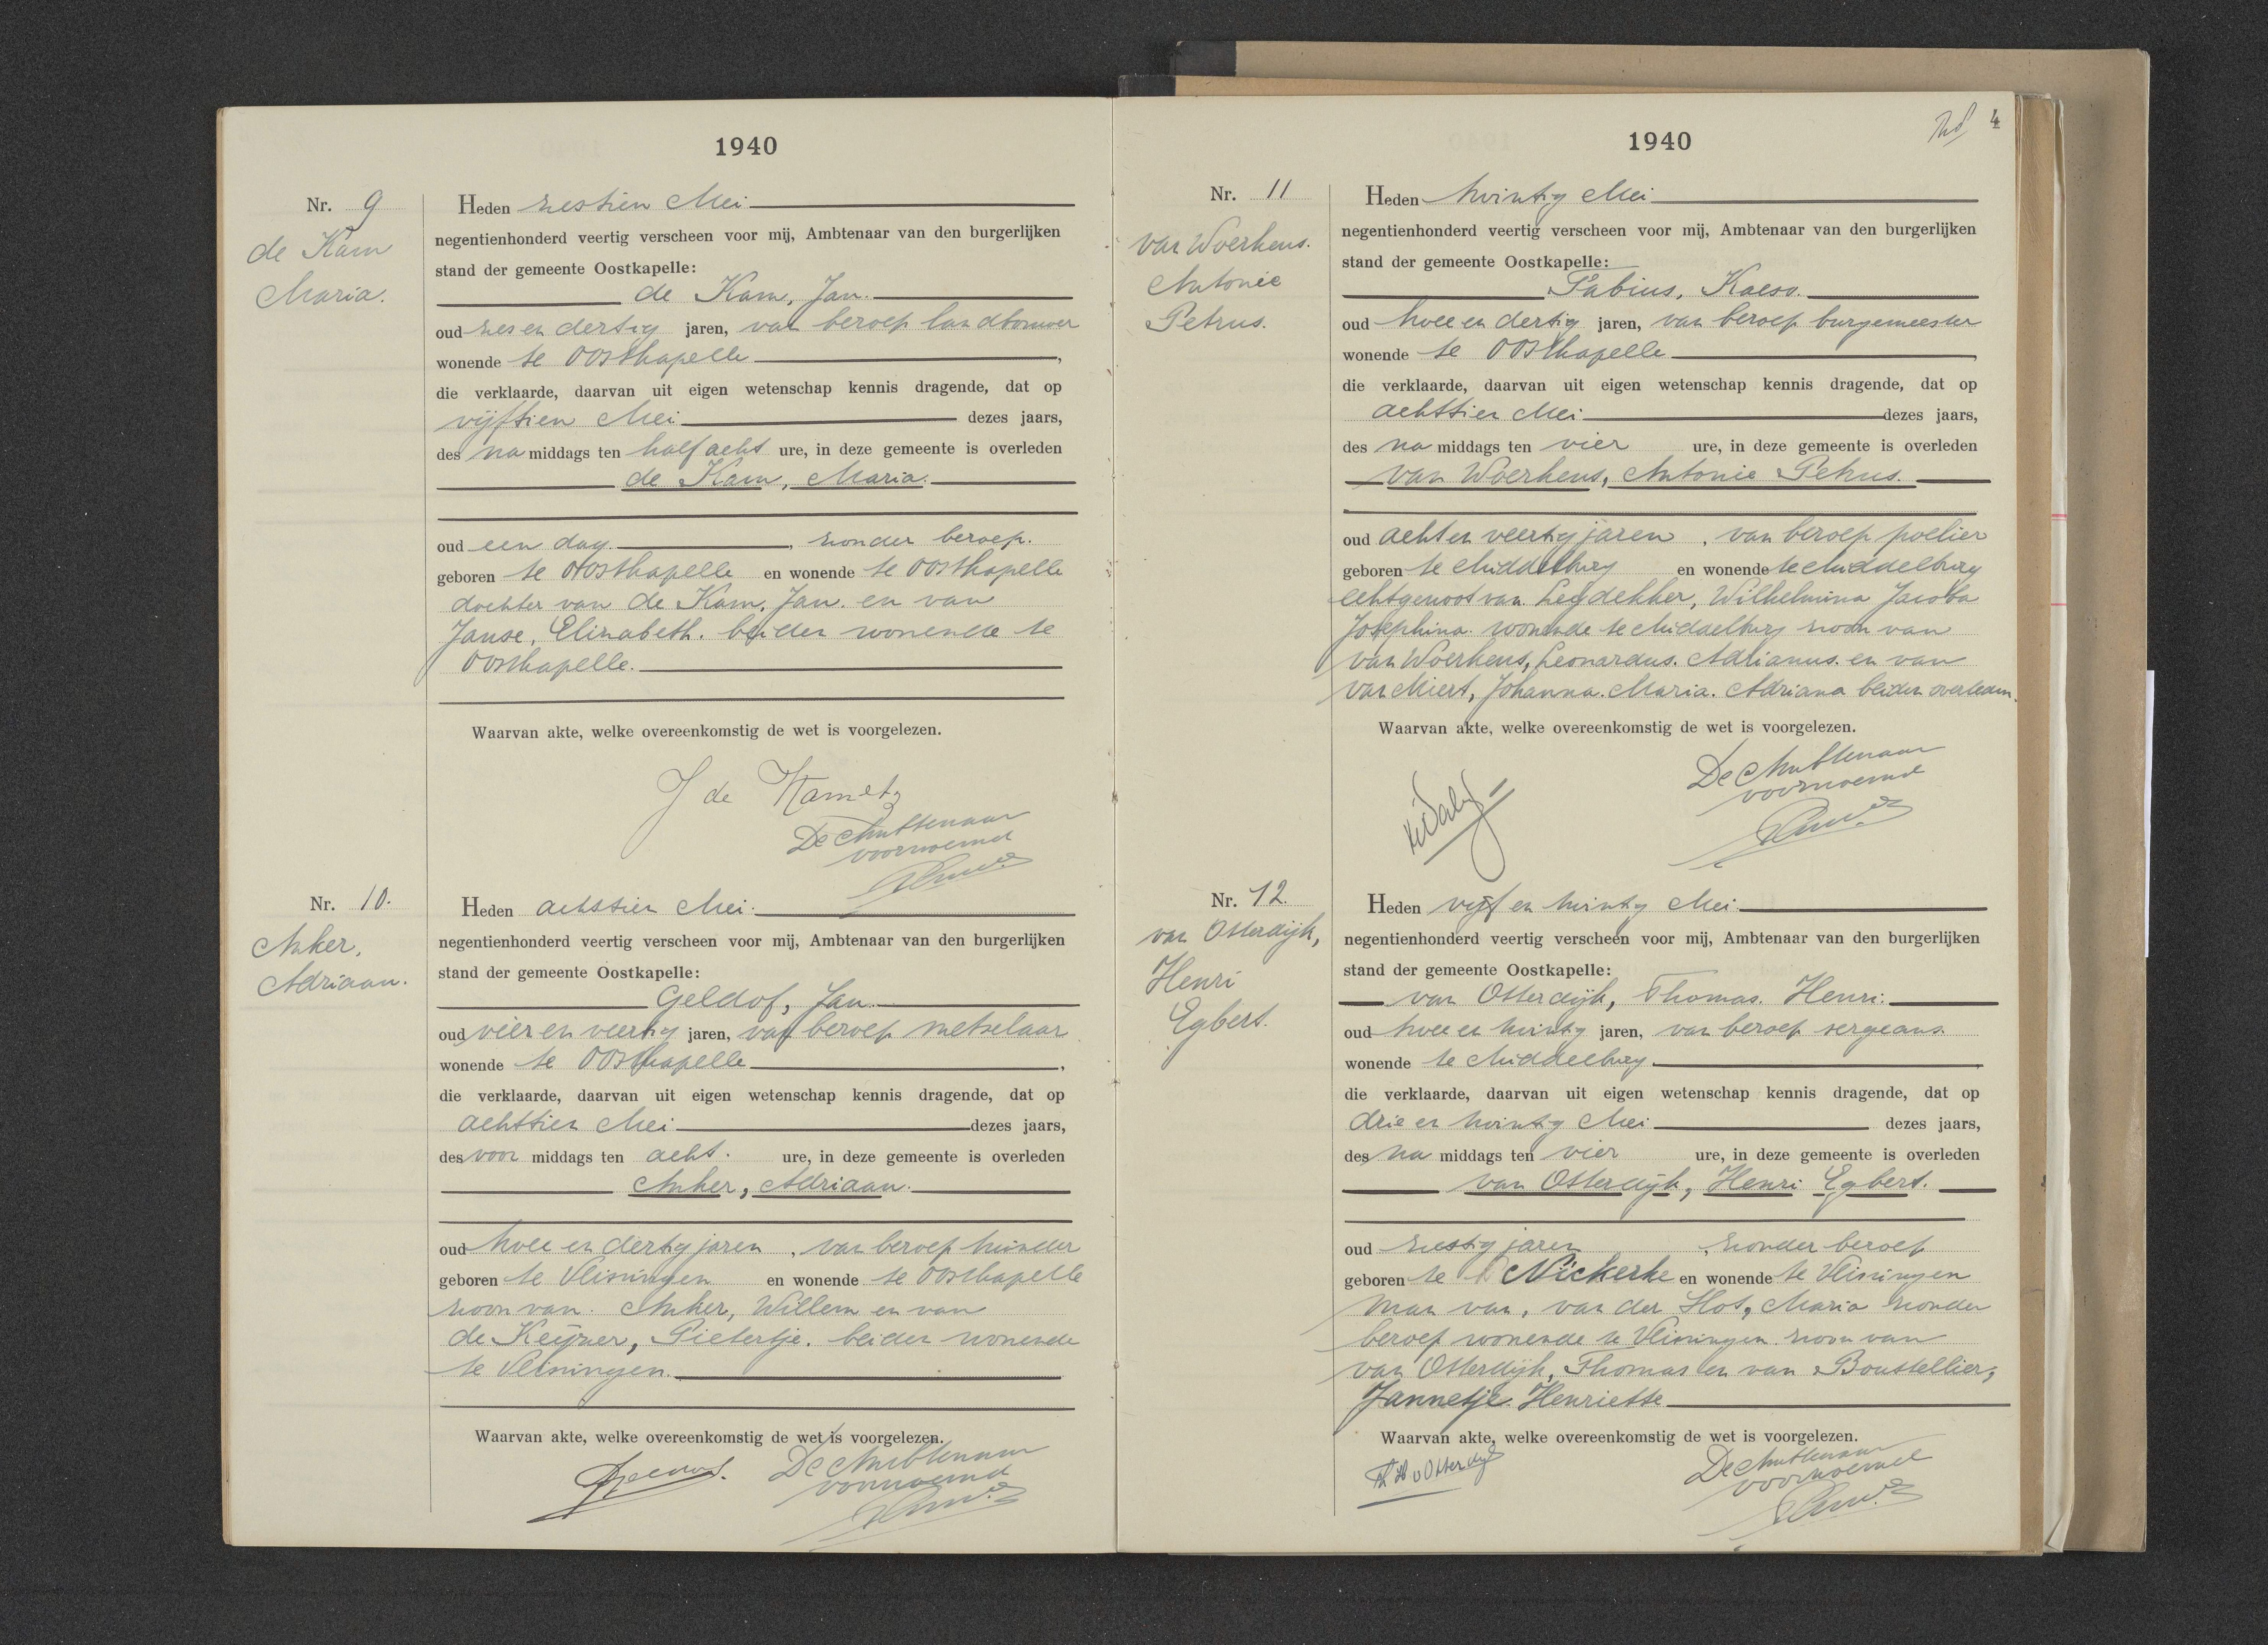 1940
Nr. 9
de Kam
Maria.
Heden zestien Mei
negentienhonderd veertig verscheen voor mij, Ambtenaar van den burgerlijken
stand der gemeente Oostkapelle:
de Kam, Jan.
oud zes en dertig jaren, van beroep landbouwer
wonende te Oostkapelle,
die verklaarde, daarvan uit eigen wetenschap kennis dragende, dat op
vijftien Mei dezes jaars,
des na middags ten half acht ure, in deze gemeente is overleden
de Kam, Maria.
oud een dag, zonder beroep.
geboren te Oostkapelle en wonende te Oostkapelle
dochter van de Kam, Jan. en van
Janse, Elizabeth. beiden wonende te
Oostkapelle.
Waarvan akte, welke overeenkomstig de wet is voorgelezen.
J de Kam
De Ambtenaar
voornoemd
Nr. 10.
Anker,
Adriaan.
Heden achttien Mei.
negentienhonderd veertig verscheen voor mij, Ambtenaar van den burgerlijken
stand der gemeente Oostkapelle:
Geldof, Jan.
oud vier en veertig jaren, van beroep metselaar
wonende te Oostkapelle,
die verklaarde, daarvan uit eigen wetenschap kennis dragende, dat op
achttien Mei dezes jaars,
des voor middags ten acht. ure, in deze gemeente is overleden
Anker, Adriaan.
oud twee en dertig jaren, van beroep tuinder
geboren te Vlissingen en wonende te Oostkapelle
zoon van. Anker, Willem en van
de Keijzer, Pietertje. beiden wonende
te Vlissingen.
Waarvan akte, welke overeenkomstig de wet is voorgelezen.
De Ambtenaar
voornoemd
1940
4
Nr. 11
van Woerkens.
Antonie
Petrus.
Heden twintig Mei
negentienhonderd veertig verscheen voor mij, Ambtenaar van den burgerlijken
stand der gemeente Oostkapelle:
Fabius, Kaeso.
oud twee en dertig jaren, van beroep burgemeester
wonende te Oostkapelle,
die verklaarde, daarvan uit eigen wetenschap kennis dragende, dat op
achttien Mei dezes jaars,
des na middags ten vier ure, in deze gemeente is overleden
van Woerkens, Antonie Petrus.
oud acht en veertig jaren, van beroep poelier
geboren te Middelburg en wonende te Middelburg
echtgenoot van Leydekker, Wilhelmina Jacoba
Josephina wonende te Middelburg zoon van
van Woerkens, Leonardus. Adrianus. en van
van Miert, Johanna. Maria. Adriana beiden overleden.
Waarvan akte, welke overeenkomstig de wet is voorgelezen.
De Ambtenaar
voornoemd
Nr. 12.
van Otterdijk,
Henri
Egbert.
Heden vijf en twintig Mei.
negentienhonderd veertig verscheen voor mij, Ambtenaar van den burgerlijken
stand der gemeente Oostkapelle:
van Otterdijk, Thomas. Henri.
oud twee en twintig jaren, van beroep sergeant.
wonende te Middelburg.
die verklaarde, daarvan uit eigen wetenschap kennis dragende, dat op
drie en twintig Mei dezes jaars,
des na middags ten vier ure, in deze gemeente is overleden
van Otterdijk, Henri Egbert.
oud zestig jaren, zonder beroep
geboren te Nickerke en wonende te Vlissingen
man van, van der Hot, Maria zonder
beroep wonende te Vlissingen zoon van
van Otterdijk, Thomas en van Boustellier,
Jannetje Henriette
Waarvan akte, welke overeenkomstig de wet is voorgelezen.
Th H v Otterdijk
De Ambtenaar
voornoemd